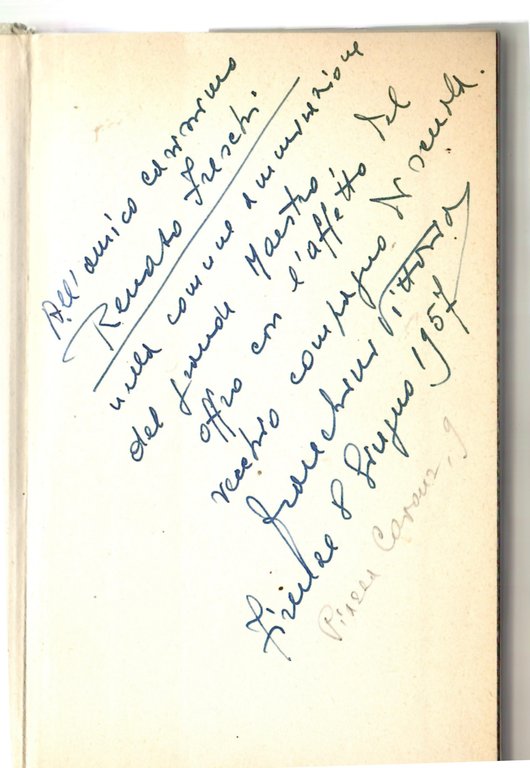 All'amico carissimo
Renato Freschi
nella comune ammirazione
del grande Maestro,
offro con l'affetto del
vecchio compagno di scuola.
Franchini Vittorio
Firenze 8 Giugno 1957
Piazza 9